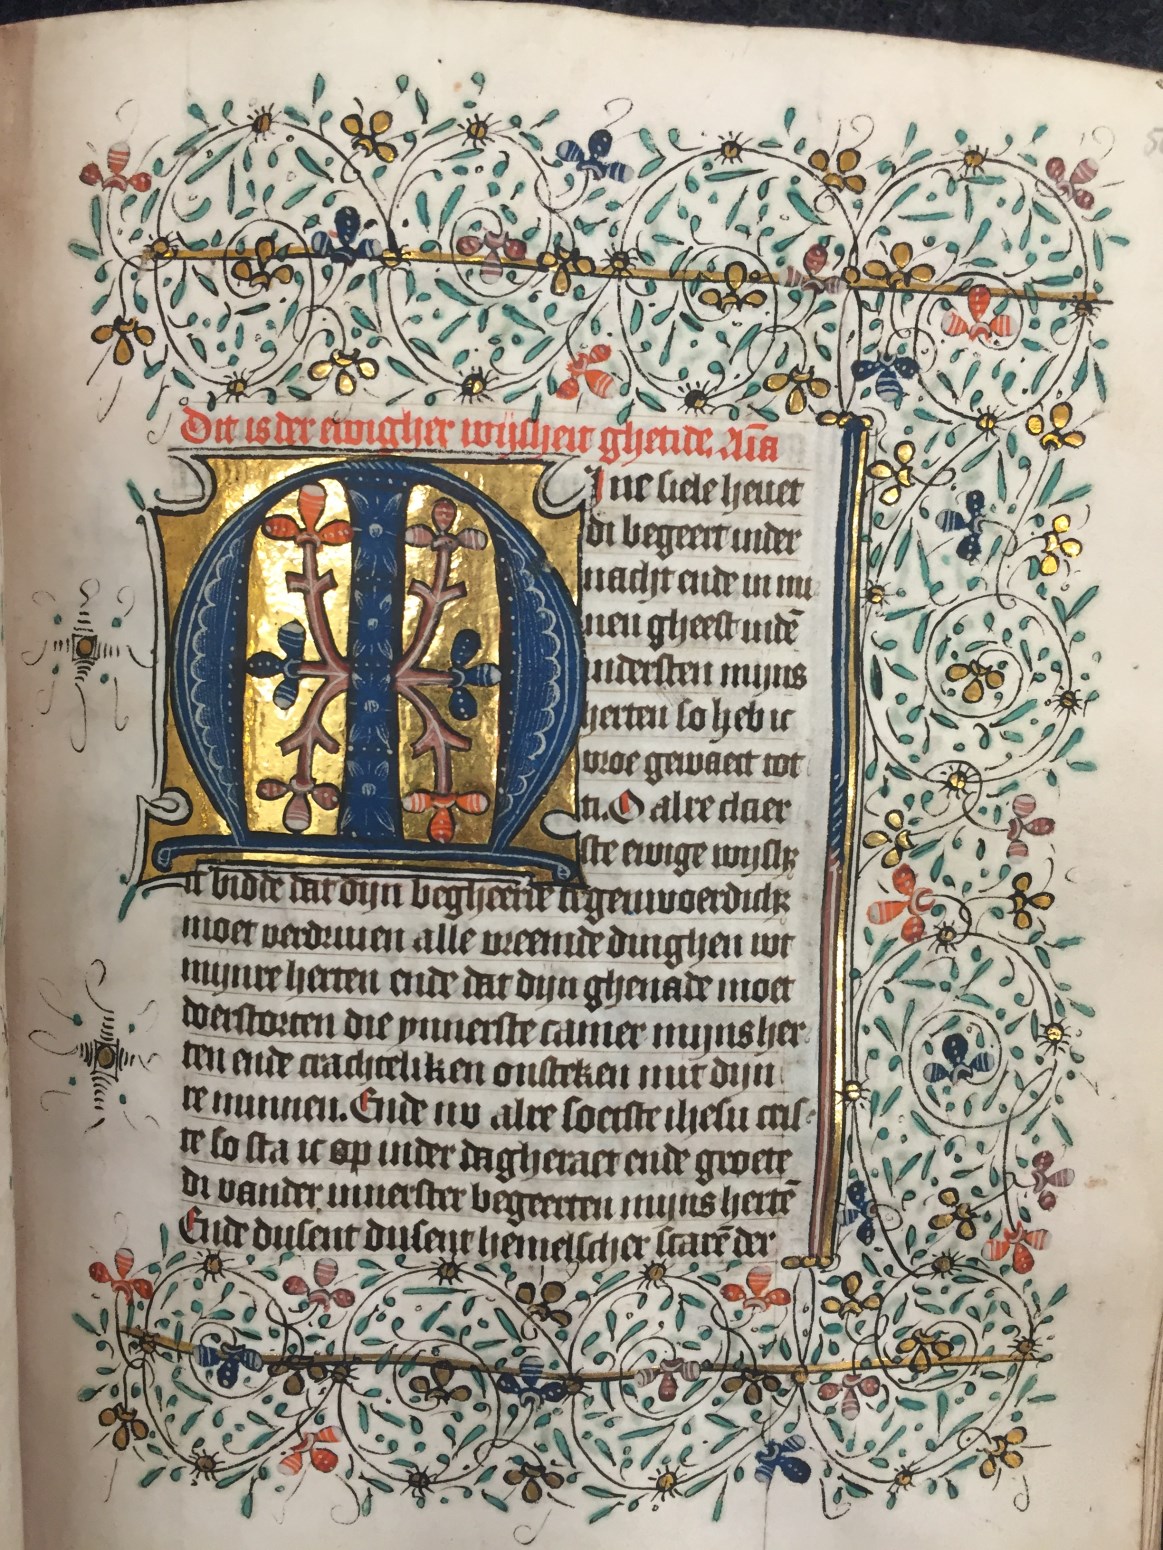 Dit is der ewigher wijsheit ghetide. Ma
M Ine siele heuet
di begeert inder
nacht ende in mi
nen gheest indē
indersten mijns
herten so heb ic
vroe gewaect tot
ti. O alre claer
ste ewige wijshz
ic bidde dat dijn begheerde tegenwoerdichz
moet verdriuen alle vreemde dinghen wt
mijnre herten ende dat dijn ghenade moet
doerstorten die ynnerste camer mijns her
ten ende crachteliken onsteken mit dijn
re minnen. Ende nv alre soetste ihesu cris-
te so sta ic op inder dagheraet ende groete
di vander innerster begeerten mijns hertē
Ende dusent dusent hemelscher scarē der